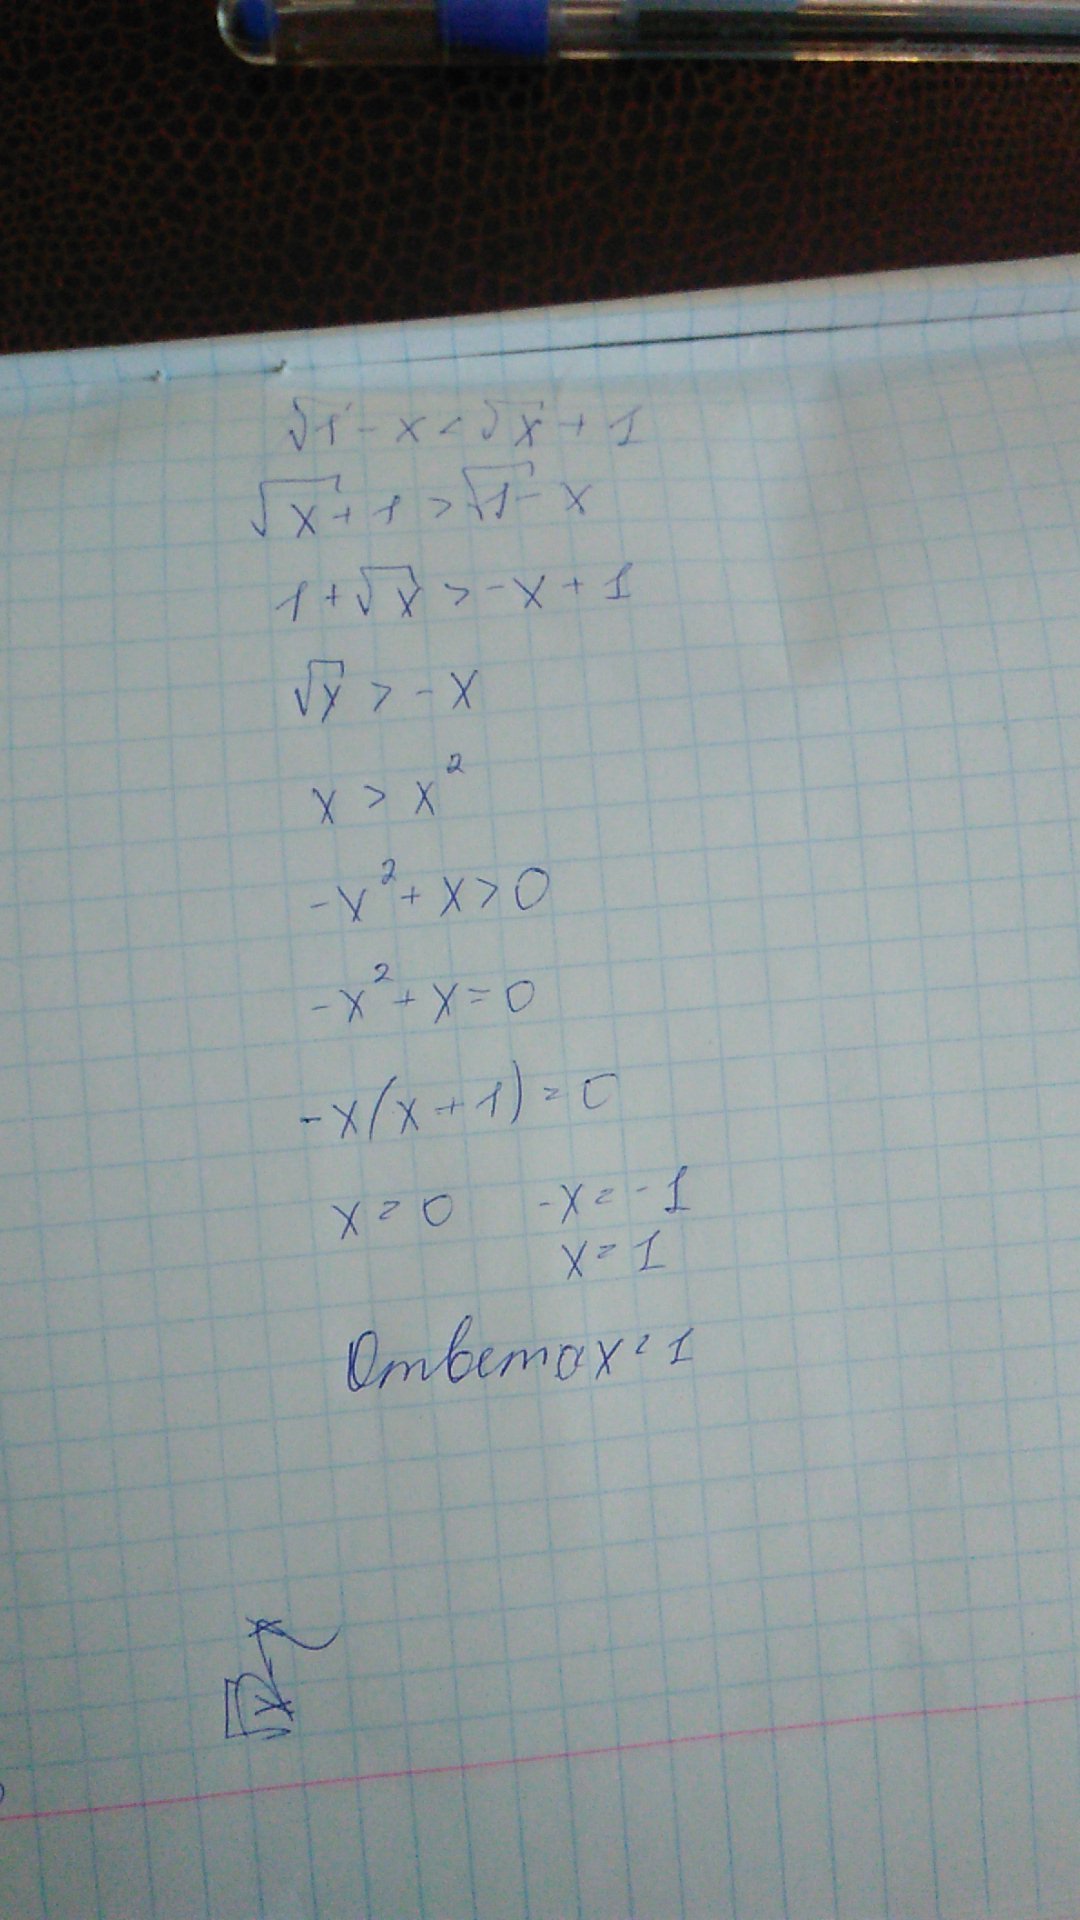 √1 - x < √x + 1
√x + 1 > √1 - x
1 + √x > -x + 1
√x > -x
x > x²
-x² + x > 0
-x² + x = 0
-x(x + 1) = 0
x = 0 -x = -1
x = 1
Ответ x = 1